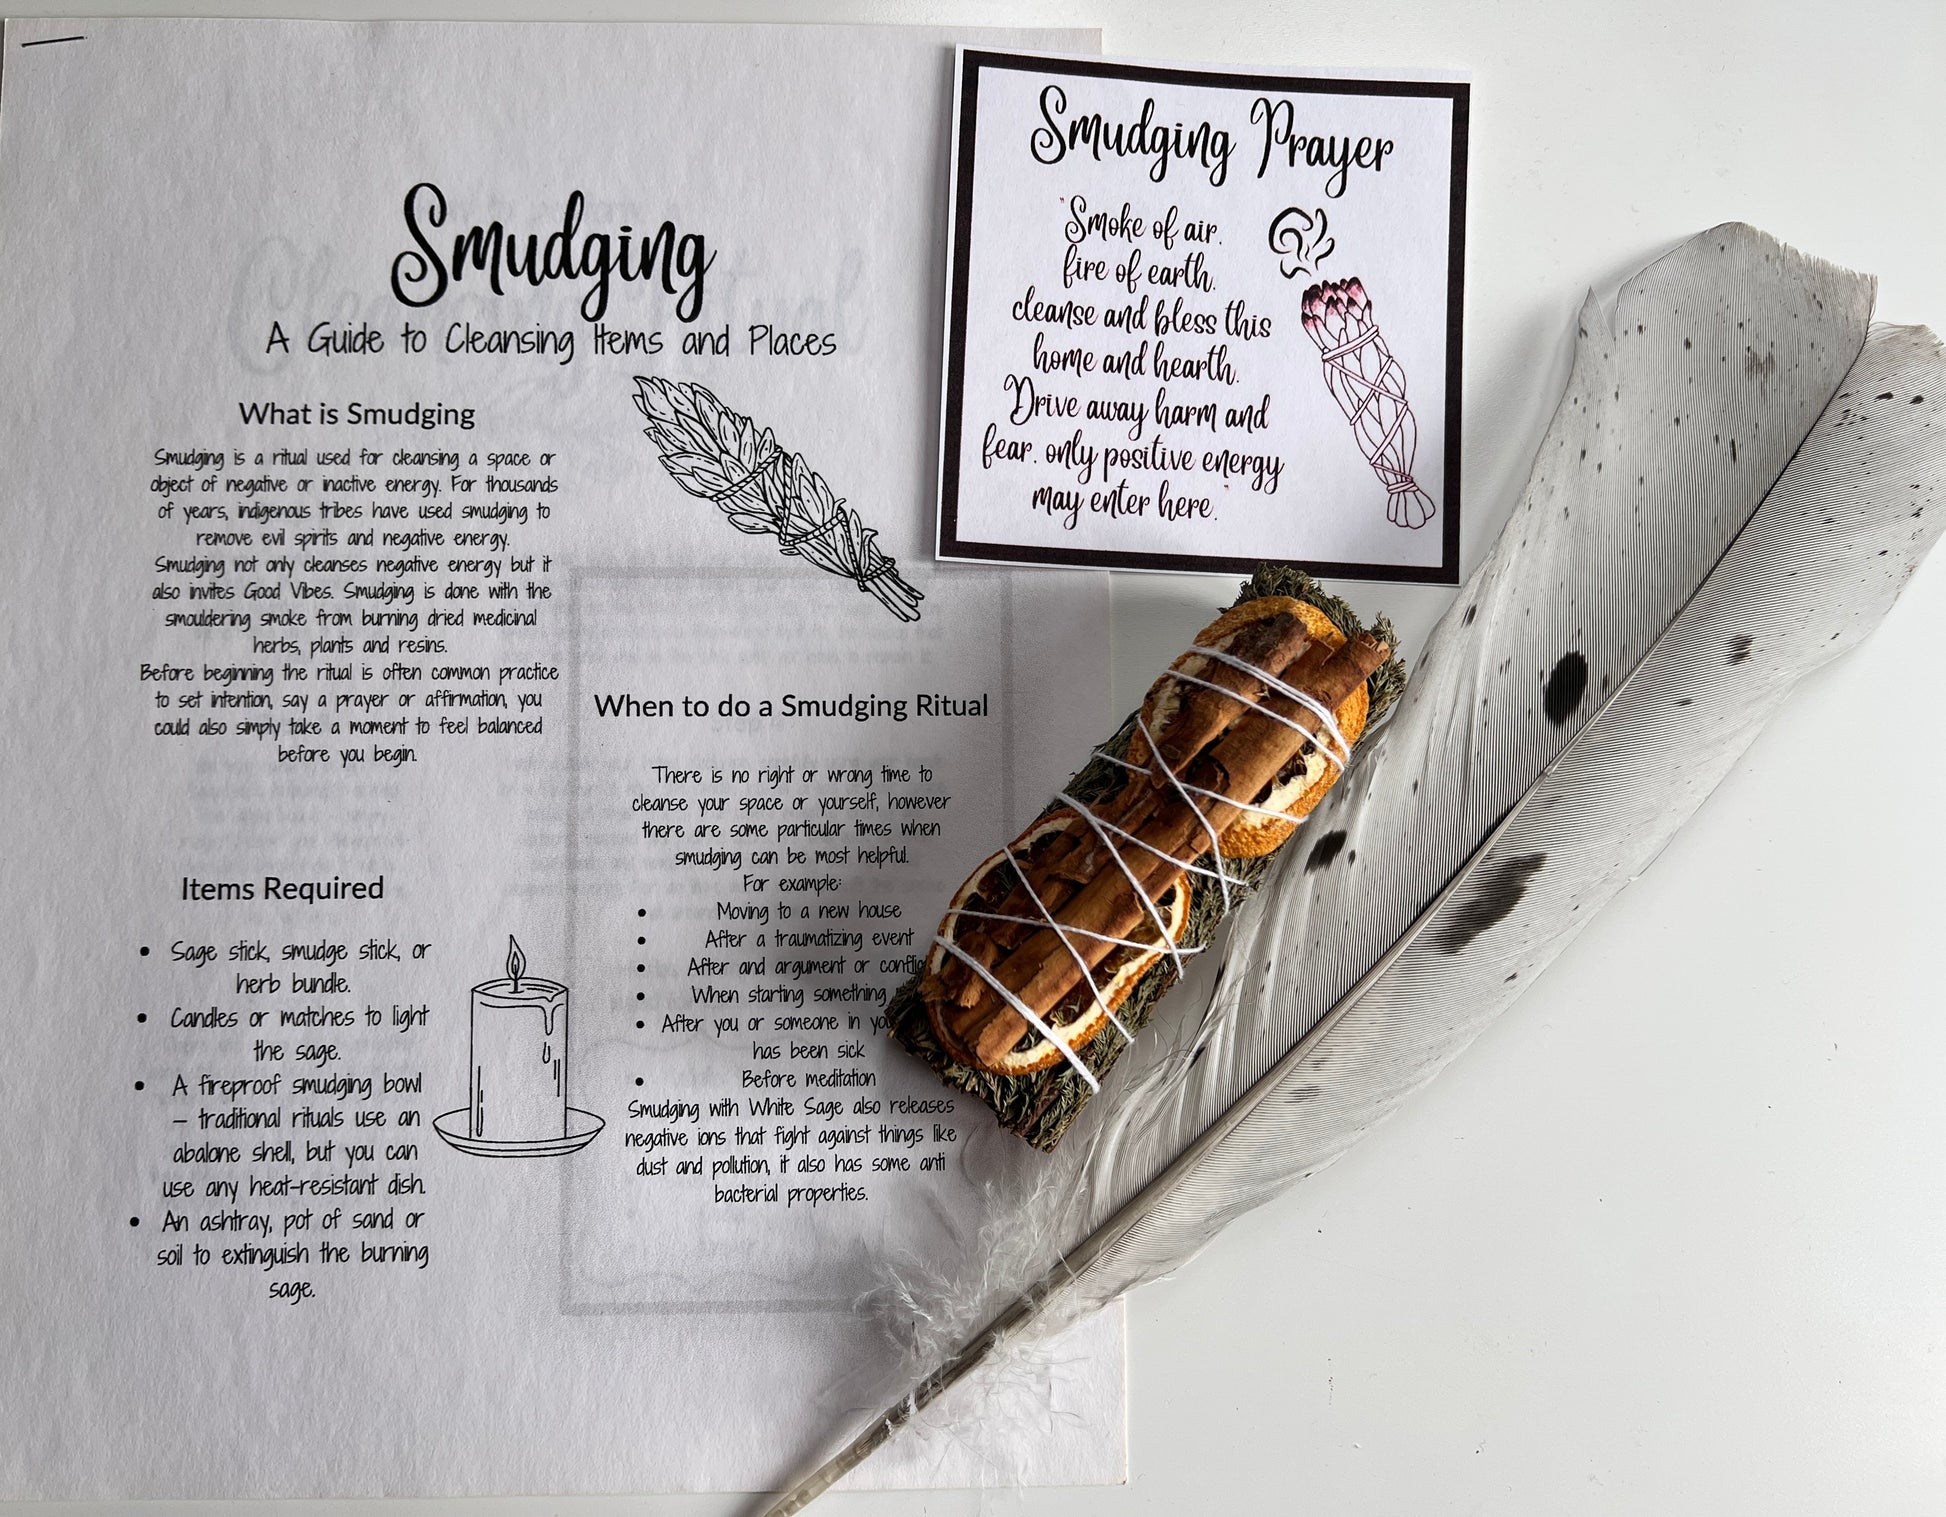 Smudging
A Guide to Cleansing Items and Places
What is Smudging
Smudging is a ritual used for cleansing a space or
object of negative or inactive energy. For thousands
of years, indigenous tribes have used smudging to
remove evil spirits and negative energy.
Smudging not only cleanses negative energy but it
also invites Good Vibes. Smudging is done with the
smouldering smoke from burning dried medicinal
herbs, plants and resins.
Before beginning the ritual is often common practice
to set intention, say a prayer or affirmation, you
could also simply take a moment to feel balanced
before you begin.
Items Required
• Sage stick, smudge stick, or
herb bundle.
• Candles or matches to light
the sage.
• A fireproof smudging bowl
– traditional rituals use an
abalone shell, but you can
use any heat-resistant dish.
• An ashtray, pot of sand or
soil to extinguish the burning
sage.
When to do a Smudging Ritual
There is no right or wrong time to
cleanse your space or yourself, however
there are some particular times when
smudging can be most helpful.
For example:
• Moving to a new house
• After a traumatizing event
• After and argument or
• When starting something
• After you or someone in
has been sick
• Before meditation
Smudging with White Sage also releases
negative ions that fight against things like
dust and pollution, it also has some anti
bacterial properties.
Smudging Prayer
"Smoke of air,
fire of earth.
cleanse and bless this
home and hearth.
Drive away harm and
fear. only positive energy
may enter here."